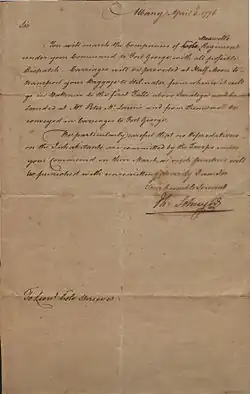 Albany April 3. 1776
Sir
Maxwell's
You will march the Companies of Colo. Regiment
under your Command to Fort George with all possible
Dispatch. Carriages will be provided at Half Moon to
transport your Baggage to Still water from whence it will
go in Batteaus to the first Falls above Saratoga
landed at Mr. Peter and from thence will be
conveyed in Carriages to Fort George.
Be particularly careful that no Depredations
on the Inhabitants are committed by the Troops under
your Command on their March, as such practices will
be punished with unremitting Severity I am Sir
Your humble Servant
Ph: Schuyler
To Lieut. Colo.